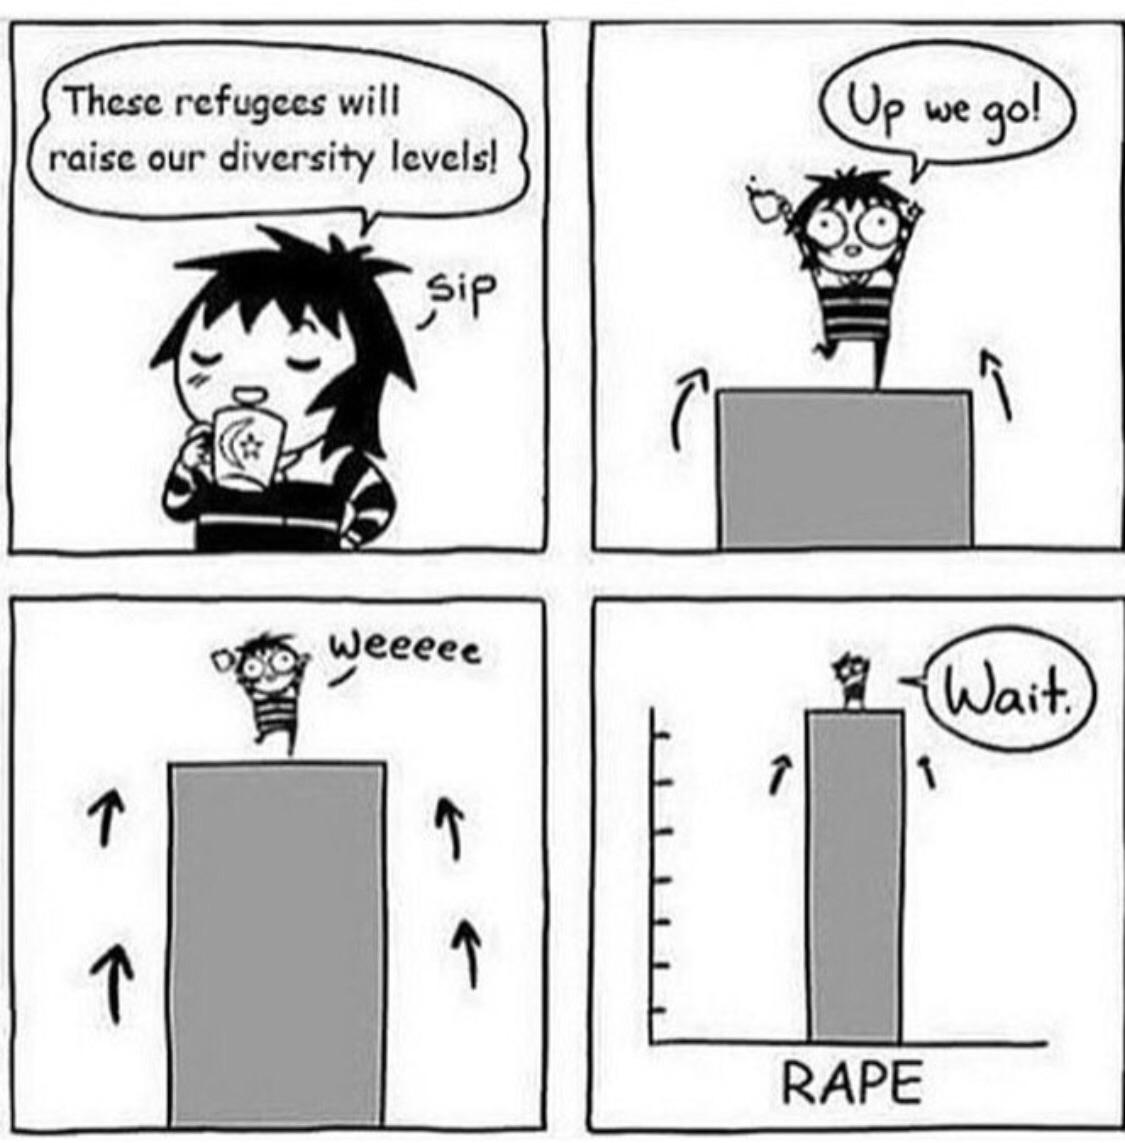 These refugees will
raise our diversity levels!
sip
Up we go!
weeeee
Wait.
RAPE